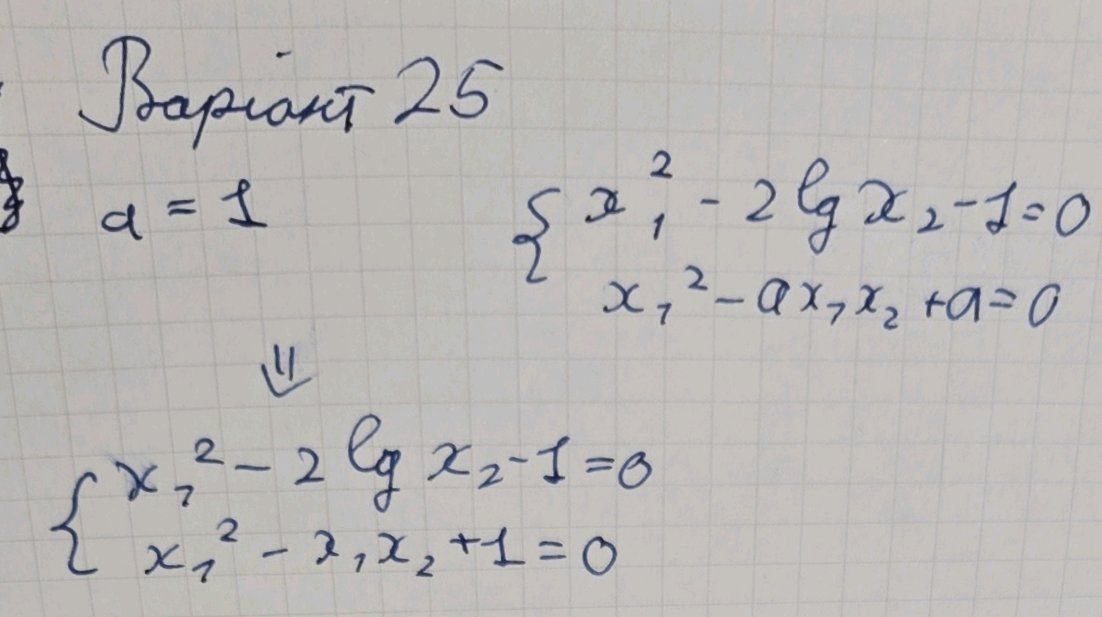 Варіант 25
a = 1
{ x₁² - 2 lg x₂ - 1 = 0
x₁² - a x₁ x₂ + a = 0
⇓
{ x₁² - 2 lg x₂ - 1 = 0
x₁² - x₁ x₂ + 1 = 0